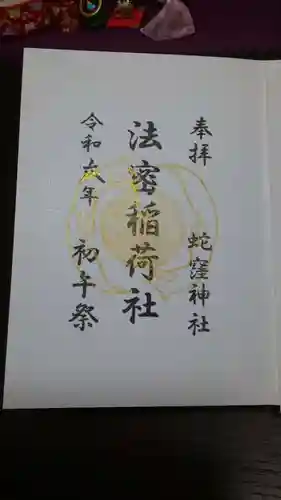 奉拝 蛇窪神社
法密稲荷社
令和六年 初午祭